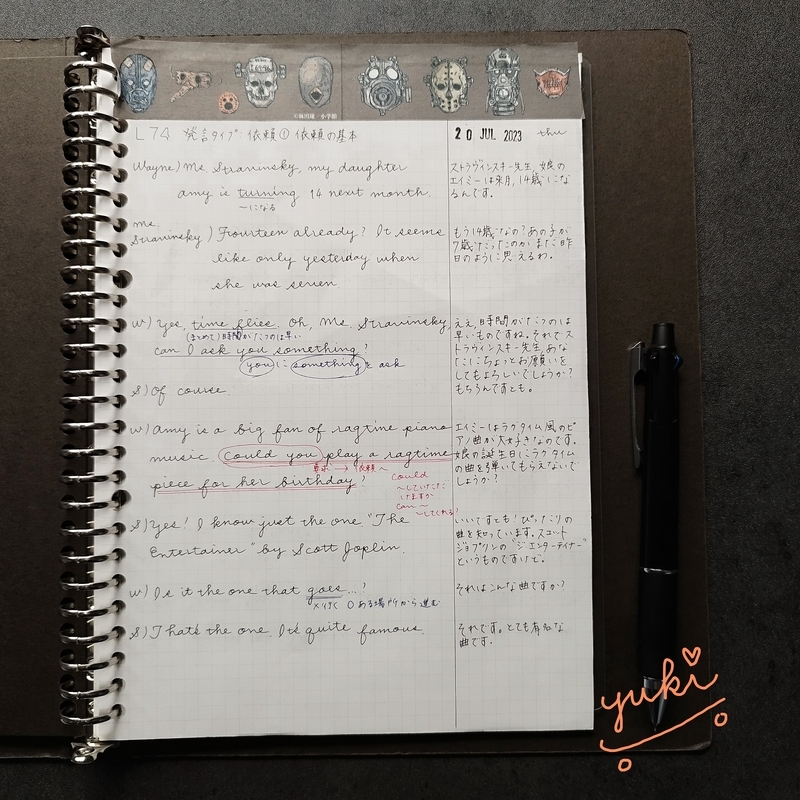 ©林田球 小学館
L74 発言タイプ:依頼① 依頼の基本
20 JUL 2023 thu
Wayne) Ms. Stravinsky, my daughter
amy is turning 14 next month.
〜になる
ストラヴィンスキー先生、娘の
エイミーは来月、14歳にな
るんです。
Ms.
Stravinsky) Fourteen already? It seems
like only yesterday when
she was seven.
もう14歳なの?あの子が
7歳だったのがまだ昨
日のように思えるわ。
W) Yes, time flies. Oh, Ms. Stravinsky,
(まとめて)時間がたつのは早い
can I ask you something?
youに somethingを ask
ええ、時間がたつのは
早いものですね。それでス
トラヴィンスキー先生、あな
たにちょっとお願いを
してもよろしいでしょうか?
S) Of course.
もちろんですとも。
W) Amy is a big fan of ragtime piano
music. Could you play a ragtime
要求 → 依頼へ
piece for her birthday?
could
〜していただ
けますか
can 〜
〜してくれる?
エイミーはラグタイム風のピ
アノ曲が大好きなのです。
娘の誕生日にラグタイム
の曲を弾いてもらえないで
しょうか?
S) Yes! I know just the one "The
Entertainer" by Scott Joplin.
いいですとも!ぴったりの
曲を知っています。スコット
ジョプリンの"ジ・エンターテイナー"
というものですけど。
W) Is it the one that goes...?
×行く ○ある場所から進む
それはこんな曲ですか?
S) That's the one. It's quite famous.
それです。とても有名な
曲です。
yuki